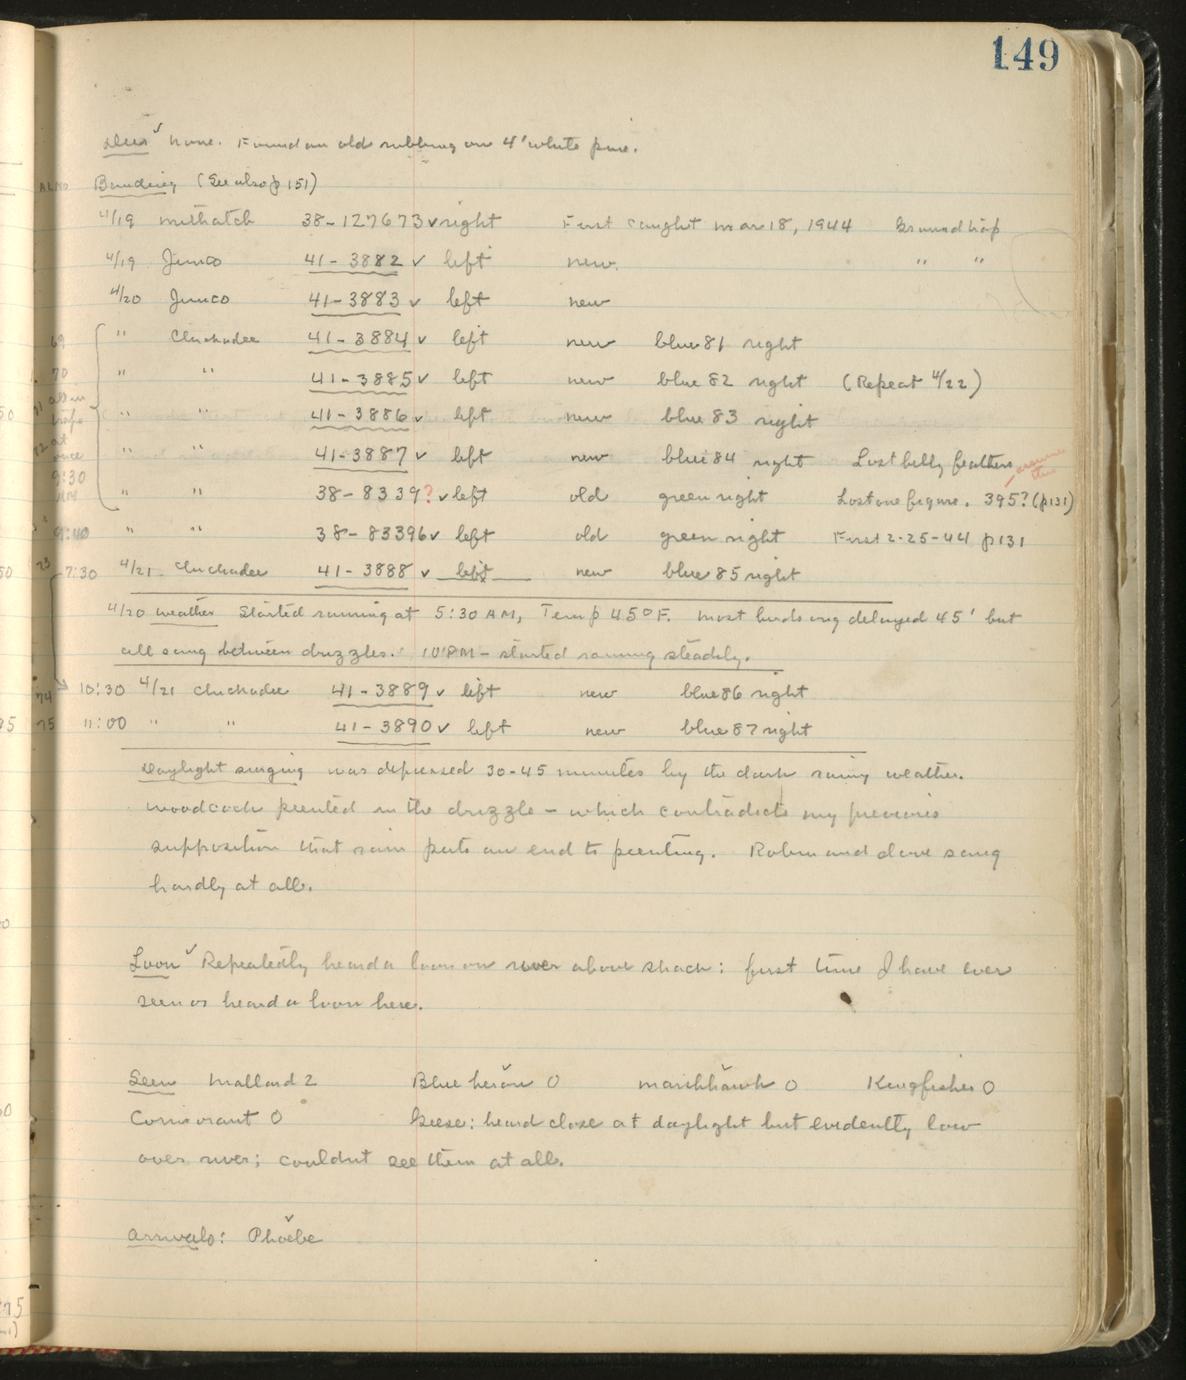 149
Deer ✓ None. Found an old rubbing on 4' white pine.
Banding (See also p 151)
4/19 nuthatch 38-127673 ✓ right First caught Mar 18, 1944 Ground trap
4/19 Junco 41-3882 ✓ left new. " "
4/20 Junco 41-3883 ✓ left new
69 " Chickadee 41-3884 ✓ left new blue 81 right
70 " " 41-3885 ✓ left new blue 82 right (Repeat 4/22)
71 all in traps at once 9:30 AM
" " 41-3886 ✓ left new blue 83 right
72 " " 41-3887 ✓ left new blue 84 right Lost belly feathers
" " 38-8339? ✓ left old green right Lost one figure. 395? (p 131)
9:40 " " 38-83396 ✓ left old green right First 2-25-44 p 131
73 7:30 4/21 Chickadee 41-3888 ✓ left new blue 85 right
4/20 weather Started raining at 5:30 AM, Temp 45°F. Most birdsong delayed 45' but
all sang between drizzles. 10 PM - started raining steadily.
74 10:30 4/21 Chickadee 41-3889 ✓ left new blue 86 right
75 11:00 " " 41-3890 ✓ left new blue 87 right
Daylight singing was depressed 30-45 minutes by the dark rainy weather.
Woodcock peented in the drizzle - which contradicts my previous
supposition that rain puts an end to peenting. Robin and dove sang
hardly at all.
Loon ✓ Repeatedly heard a loon on river above shack: first time I have ever
seen or heard a loon here.
Seen Mallard 2 Blue heron ✓ 0 marsh hawk ✓ 0 Kingfisher 0
Cormorant 0 Geese: heard close at daylight but evidently low
over river; couldn't see them at all.
Arrivals: Phoebe ✓